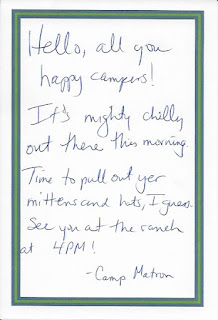 Hello, all you
happy campers!
It's mighty chilly
out there this morning.
Time to pull out yer
mittens and hats, I guess.
See you at the ranch
at 4PM!
-Camp Matron